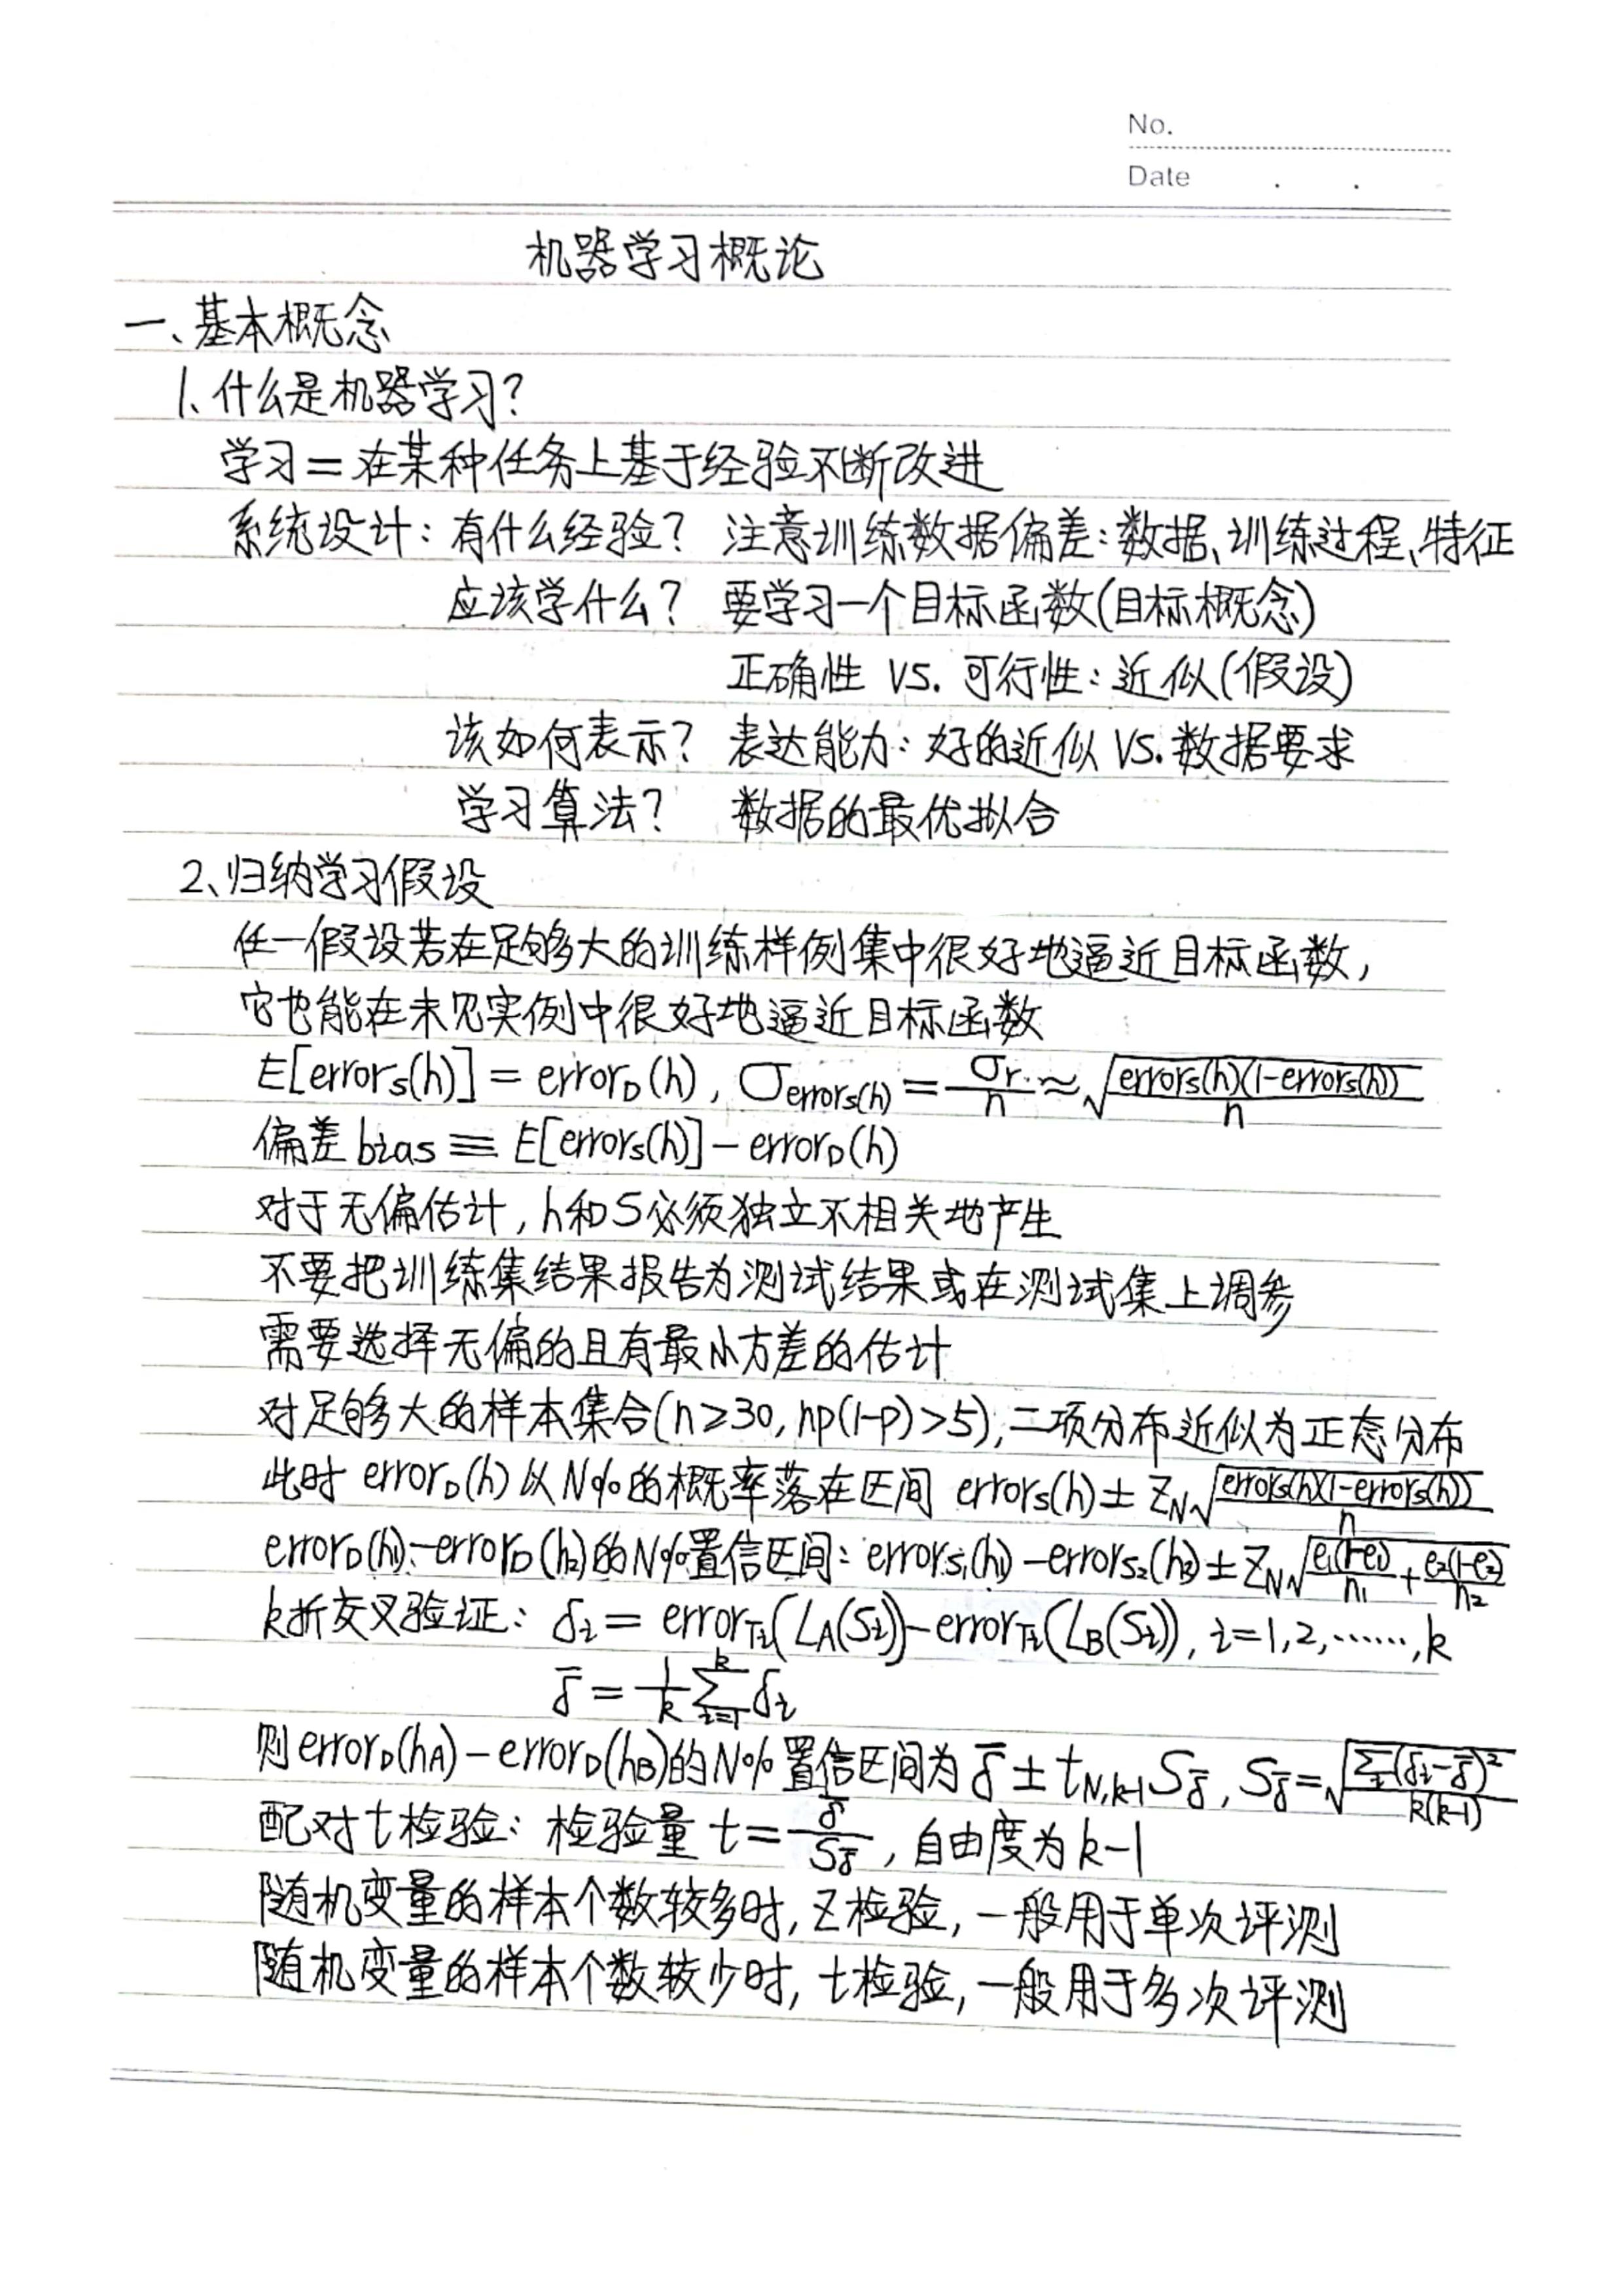 No.
Date . .
机器学习概论
一、基本概念
1、什么是机器学习?
学习=在某种任务上基于经验不断改进
系统设计: 有什么经验? 注意训练数据偏差:数据、训练过程、特征
应该学什么? 要学习一个目标函数(目标概念)
正确性 VS. 可行性:近似(假设)
该如何表示? 表达能力:好的近似 VS. 数据要求
学习算法? 数据的最优拟合
2、归纳学习假设
任一假设若在足够大的训练样例集中很好地逼近目标函数,
它也能在未见实例中很好地逼近目标函数
E[error_S(h)] = error_D(h), σ_{error_S(h)} = σ_r/n ≈ √(error_S(h)(1-error_S(h))/n)
偏差 bias ≡ E[error_S(h)] - error_D(h)
对于无偏估计, h和S必须独立不相关地产生
不要把训练集结果报告为测试结果或在测试集上调参
需要选择无偏的且有最小方差的估计
对足够大的样本集合(n≥30, np(1-p)>5),二项分布近似为正态分布
此时 error_D(h) 以N%的概率落在区间 error_S(h) ± Z_N√(error_S(h)(1-error_S(h))/n)
error_D(h₁)-error_D(h₂)的N%置信区间: error_{S₁}(h₁) - error_{S₂}(h₂) ± Z_N√(e₁(1-e₁)/n₁ + e₂(1-e₂)/n₂)
k折交叉验证: δ_i = error_{T_i}(L_A(S_i)) - error_{T_i}(L_B(S_i)), i=1,2,……,k
δ̄ = 1/k ∑_{i=1}^{k} δ_i
则error_D(h_A) - error_D(h_B)的N%置信区间为 δ̄ ± t_{N,k-1} S_δ̄, S_δ̄ = √(∑_i(δ_i-δ̄)²/k(k-1))
配对t检验: 检验量 t = δ̄/S_δ̄, 自由度为 k-1
随机变量的样本个数较多时, Z检验, 一般用于单次评测
随机变量的样本个数较少时, t检验, 一般用于多次评测